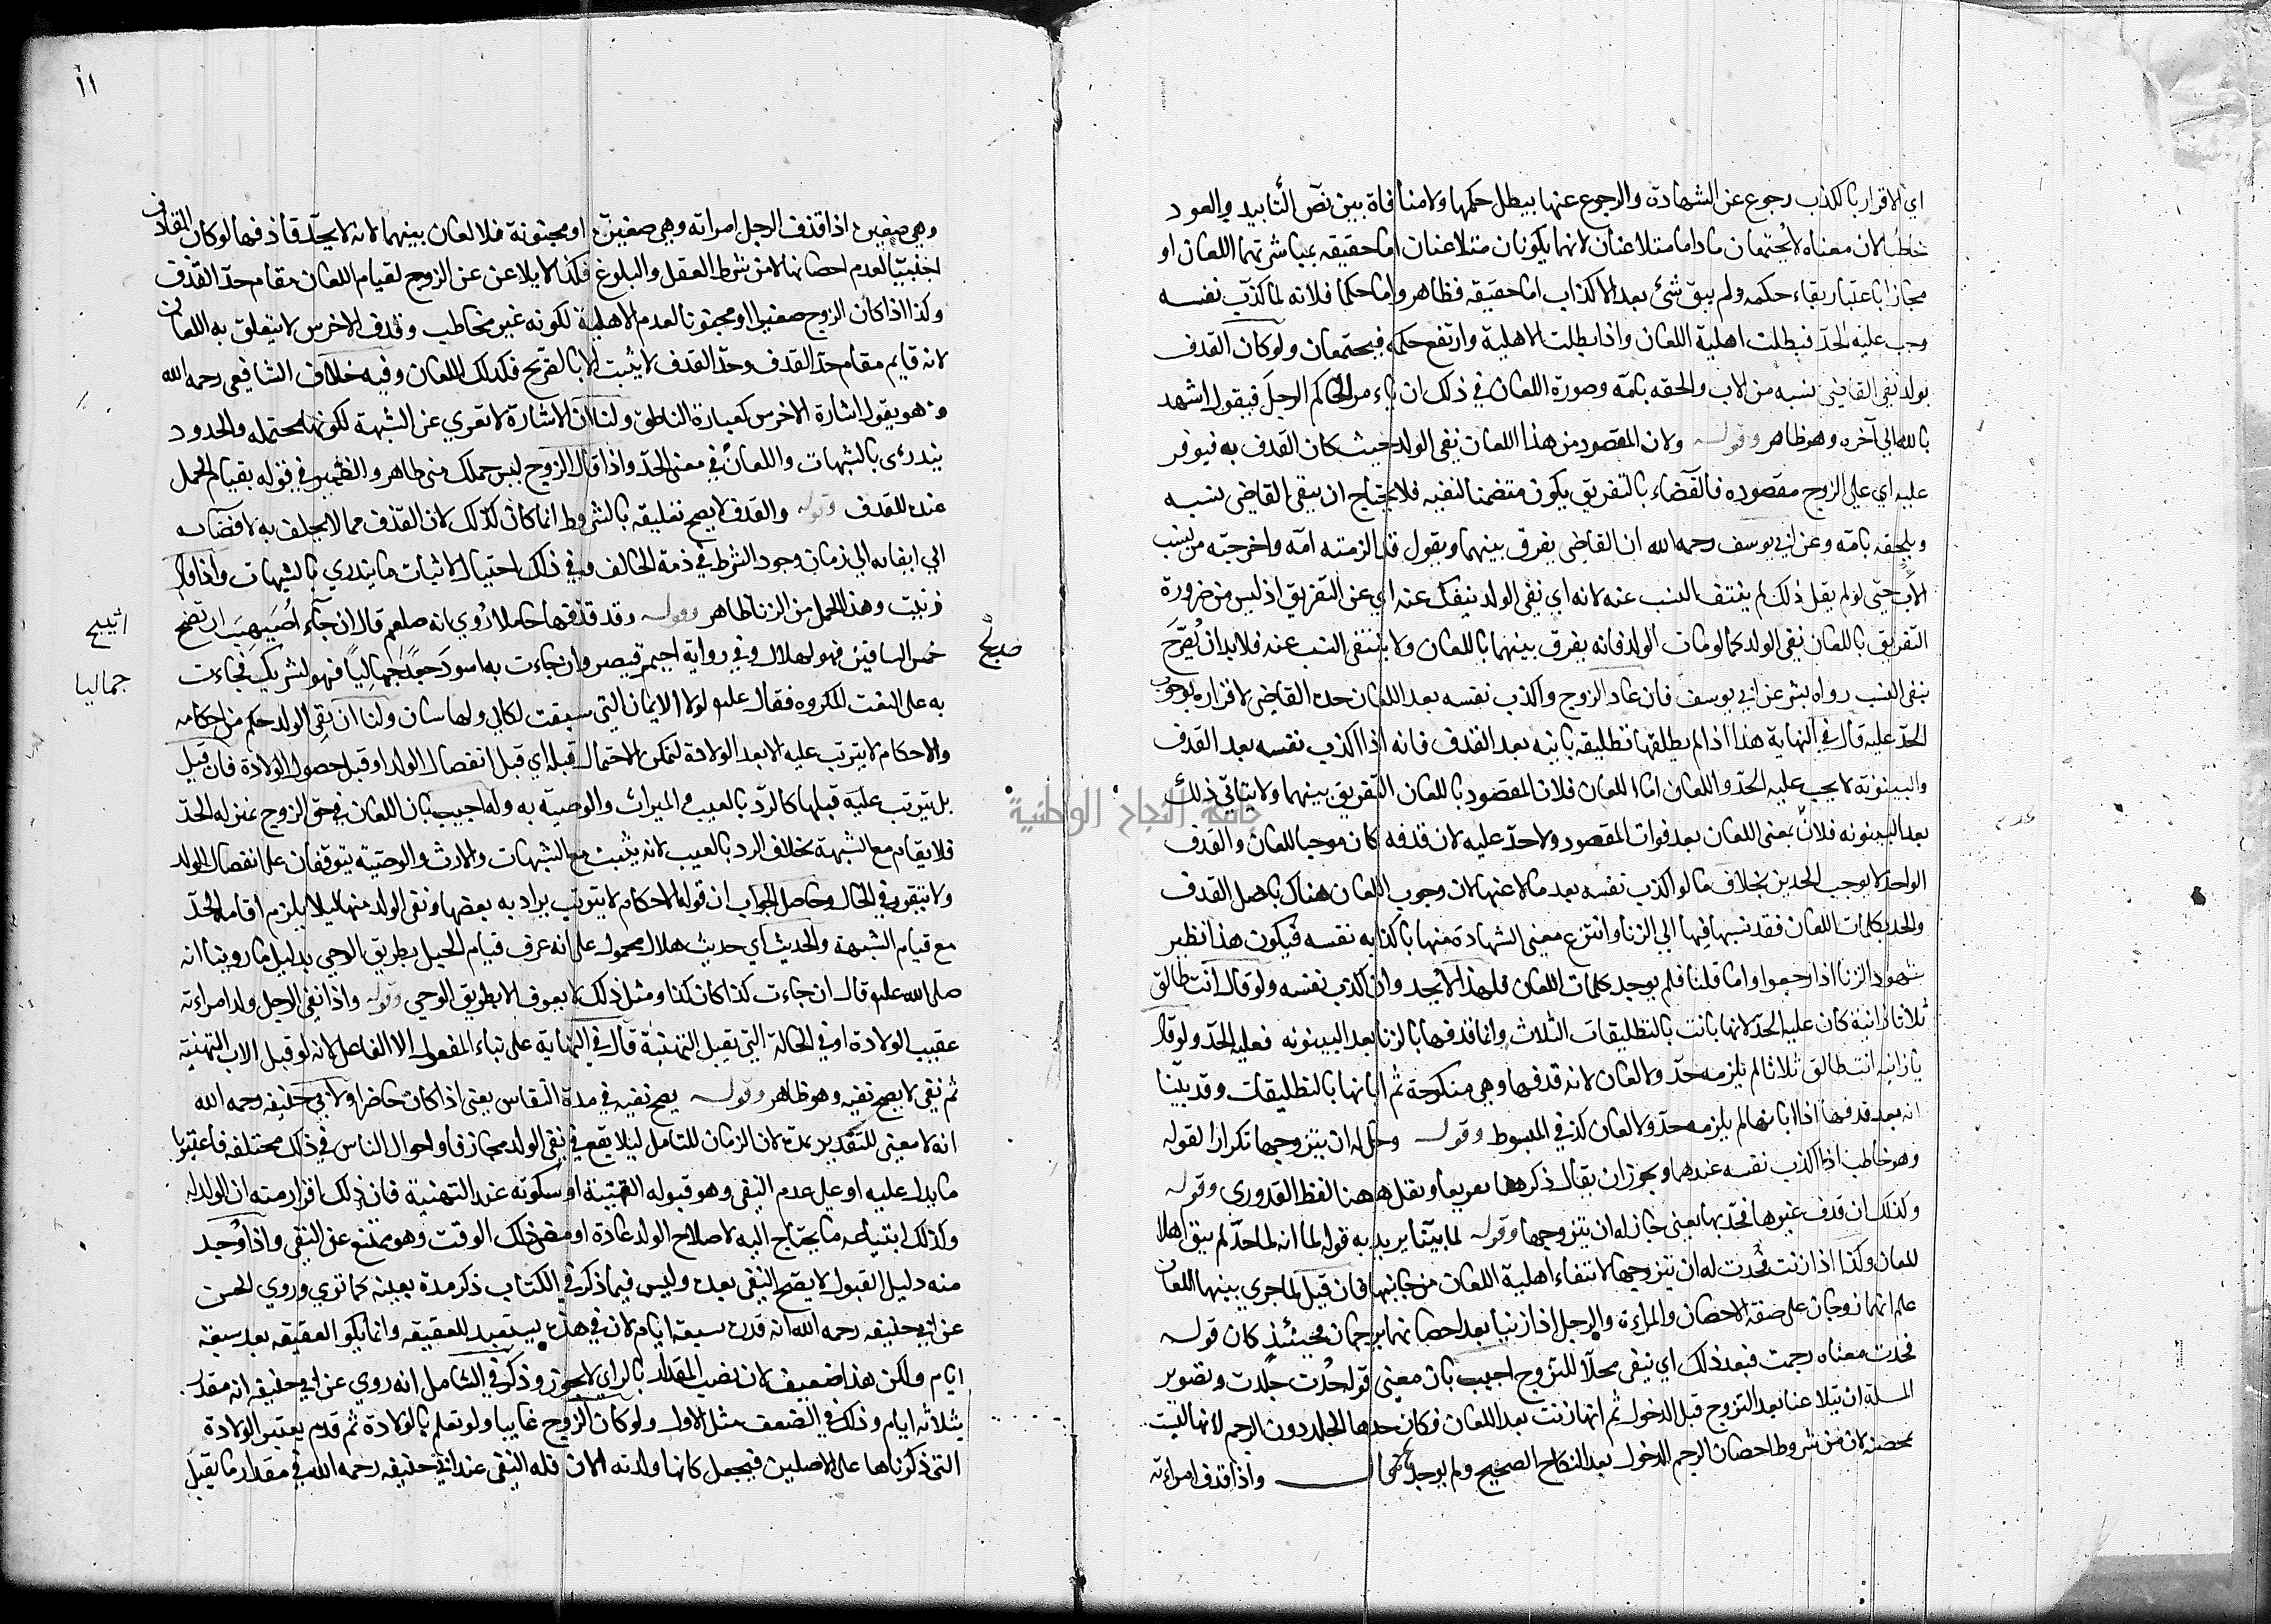 اي الاقرار بالكذب رجوع عن الشهادة والرجوع عنها يبطل حكمها ولا منافاة بين نص التأبيد والعود
خاطبا لان معناه لا يجتمعان ماداما متلاعنان لانهما يكونان متلاعنان اما حقيقه بمباشرتهما اللعان او
مجازا باعتبار بقاء حكمه ولم يبق شئ بعد الاكذاب اما حقيقه فظاهر واما حكما فلانه لما كذب نفسه
وجب عليه الحد فبطلت اهلية اللعان واذا بطلت الاهلية وارتفع حكمه فيجتمعان ولو كان القدف
بولد نفي القاضي نسبه من الاب والحقه بامه وصورة اللعان في ذلك ان يامر الحاكم الرجل فيقول اشهد
بالله الي آخره وهو ظاهر وقوله ولان المقصود من هذا اللعان نفي الولد حيث كان القدف به فيوفر
عليه اي علي الزوج مقصوده فالقضاء بالتفريق يكون متضمنا لنفيه فلا يحتاج ان ينفي القاضي نسبه
ويلحقه بامه وعن ابي يوسف رحمه الله ان القاضي يفرق بينهما ويقول قد الزمته امه واخرجته من نسب
الاب حتي لو لم يقل ذلك لم ينتف النسب عنه لانه اي نفي الولد ينفك عنه اي عن التفريق اذ ليس من ضرورة
التفريق باللعان نفي الولد كما لو مات الولد فانه يفرق بينهما باللعان ولا ينتفي النسب عنه فلا بد ان يُصَرَّح
بنفي النسب رواه بشر عن ابي يوسف فان عاد الزوج واكذب نفسه بعد اللعان حده القاضي لاقراره بوجوب
الحد عليه قال في النهاية هذا اذا لم يطلقها تطليقه بائنه بعد القدف فانه اذا اكذب نفسه بعد القدف
والبينونة لا يجب عليه الحد واللعان اما اللعان فلان المقصود باللعان التفريق بينهما ولا يتاتي ذلك
بعد البينونه فلان بمعنى اللعان بعد فوات المقصود ولا حد عليه لان قدفه كان موجبا للعان والقدف
الواحد لا يوجب الحدين بخلاف ما لو اكذب نفسه بعد ما لاعنها لان وجوب اللعان هناك باصل القدف
والحد بكلمات اللعان فقد نسبها فيها الي الزنا وانتزع معني الشهادة منها باكذابه نفسه فيكون هذا نظير
شهود الزنا اذا رجعوا واما قلنا فلم يوجد كلمات اللعان فلهذا لا يحد وان اكذب نفسه ولو قال انت طالق
ثلاثا يا زانية كان عليه الحد لانها بانت بالتطليقات الثلاث وانما قدفها بالزنا بعد البينونه فعليه الحد ولو قال
يا زانيه انت طالق ثلاثا لم يلزمه حد ولا لعان لانه قدفها وهي منكوحة ثم ابانها بالتطليقات وقد بينا
انه بعد قدفها اذا ابانها لم يلزمه حد ولا لعان كذا في المبسوط وقوله وحل له ان يتزوجها تكرارا لقوله
وهو خاطب اذا اكذب نفسه عندهما ويجوز ان يقال ذكرهنا تفريعا ونقل ههنا لفظ القدوري وقوله
وكذلك ان قدف غيرها فحد بها يعني جاز له ان يتزوجها وقوله لما بينا يريد به قوله لما انه لما حد لم يبق اهلا
للعان وكذا اذا زنت فحدت له ان يتزوجها لانتفاء اهلية اللعان من جانبها فان قيل لما جري بينهما اللعان
علم انهما زوجان على صفة الاحصان والمراءة والرجل اذا زنيا بعد احصانهما يرجمان فحينئذ كان قوله
فحدت معناه رجمت فبعد ذلك اي يبقى محلا للتزوج اجيب بان معني قوله حُدت جلدت وتصوير
المسلة ان يتلاعنا بعد التزوج قبل الدخول ثم انها زنت بعد اللعان فكان حدها الجلد دون الرجم لانها ليست
بمحصنة لان من شروط احصان الرجم الدخول بعد النكاح الصحيح ولم يوجد قال واذا قدف امراءته
عدم
١١
وهي صغيرة اذا قذف الرجل امراته وهي صغيرة او مجنونة فلا لعان بينهما لانه لا يحد قاذفها لو كان القاذف
اجنبيا لعدم احصانها لان من شرط العقل والبلوغ فكذا لا يلاعن عن الزوج لقيام اللعان مقام حد القذف
وكذا اذا كان الزوج صغيرا او مجنونا لعدم الاهلية لكونه غير مخاطب وقدف الاخرس لا يتعلق به اللعان
لانه قايم مقام حد القدف وحد القدف لا يثبت الا بالصريح فكذلك اللعان وفيه خلاف الشافعي رحمه الله
وهو يقول اشارة الاخرس كعبارة الناطق ولنا ان الاشارة لا تعري عن الشبهة لكونها محتمله والحدود
يندرئ بالشبهات واللعان في معني الحد واذا قال الزوج ليس حملك مني ظاهر والضمير في قوله بقيام الحمل
عنده للقدف وقوله والقدف لا يصح تعليقه بالشروط انما كان كذلك لان القذف مما لا يحلف به لافضائه
الي ابقائه الي زمان وجود الشرط في ذمة الحالف وفي ذلك احتيال لاثبات ما يندري بالشبهات واذا قال
زنيت وهذا الحمل من الزنا ظاهر وقوله وقد قذفها حاملا رُوي انه صلعم قال ان جاء اُصَيهِبَ ارسح
خمس الساقين فهو لهلال وفي رواية احيمر قيصر وان جاءت به اسود جعدا جُمالياً فهو لشريك فجاءت
به على النعت المكروه فقال عليه لولا الايمان التي سبقت لكان لي ولها شان ولنا ان نفي الولد حكم من احكامه
والاحكام لا يترتب عليه الا بعد الولادة لتمكن الاحتمال قبله اي قبل انفصال الولد او قبل حصول الولادة فان قيل
بل يترتب عليه قبلها كالرد بالعيب والميراث والوصية به وله اجيب بان اللعان في حق الزوج بمنزله الحد
فلا يقام مع الشبهة بخلاف الرد بالعيب لانه يثبت مع الشبهات والارث والوصية يتوقفان على انفصال الولد
ولا يتقرر في الحال وحاصل الجواب ان قوله الاحكام لا يترتب يراد به بعضها ونفي الولد منها ليلا يلزم اقامه الحد
مع قيام الشبهة والحديث اي حديث هلال محمول على انه عرف قيام الحبل بطريق الوحي بدليل ما روينا انه
صلى الله عليه قال ان جاءت كذا كان كذا ومثل ذلك لا يعرف الا بطريق الوحي وقوله واذا نفي الرجل ولد امراءته
عقيب الولادة او في الحالة التي تقبل التهنية قال في النهاية على بناء المفعول الا الفاعل لانه لو قبل الاب التهنية
ثم نفي لا يصح نفيه وهو ظاهر وقوله يصح نفيه في مدة النفاس يعني اذا كان حاضرا ولابي حنيفه رحمه الله
انه لا معني للتقدير بمدة لان الزمان للتامل ليلا يقع في نفي الولد مجازفا واحوال الناس في ذلك مختلفه فاعتبرنا
ما يدل عليه او على عدم النفي وهو قبوله التهنية او سكوته عند التهنية فان ذلك اقرار منه ان الولد له
وكذلك ابتياعه ما يحتاج اليه لاصلاح الولد عادة او مضى ذلك الوقت وهو ممتنع عن النفي واذا وُجد
منه دليل القبول لا يصح النفي بعده وليس فيما ذكر في الكتاب ذكر مدة بعينه كما تري وروي الحسن
عن ابي حنيفه رحمه الله انه قدره سبعة ايام لان في هذه يستعد للعقيقه وانما يكو العقيقه بعد سبعة
ايام ولكن هذا ضعيف لان نصب المقدار بالراي لا يجوز وذكر في الشامل انه روي عن ابي حنيفه انه مقدر
بثلاثه ايام وذلك في الضعف مثل الاول ولو كان الزوج غايبا ولو تعلم بالولادة ثم قدم يعتبر الولادة
التي ذكرناها على الاصلين فيجعل كانها ولدته الان فله النفي عند ابي حنيفه رحمه الله في مقدار ما يقبل
اثيبج
جماليا
جامعة النجاح الوطنية